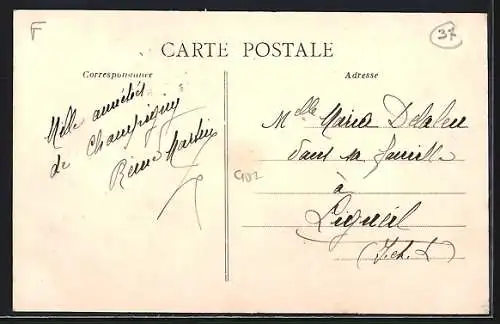 F
37
CARTE POSTALE
Correspondance
Adresse
Mille amitiés
de Champigny
Martin
Melle Maria Delaleu
dans sa famille
à
Ligueil
(I. et L)